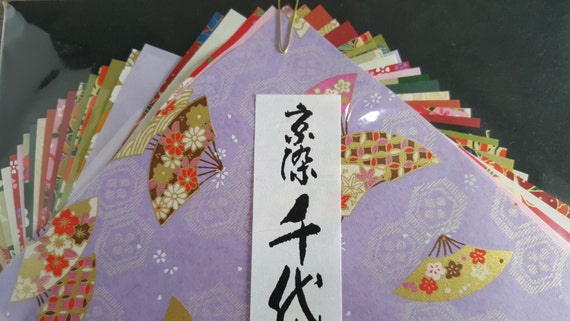 京染千代